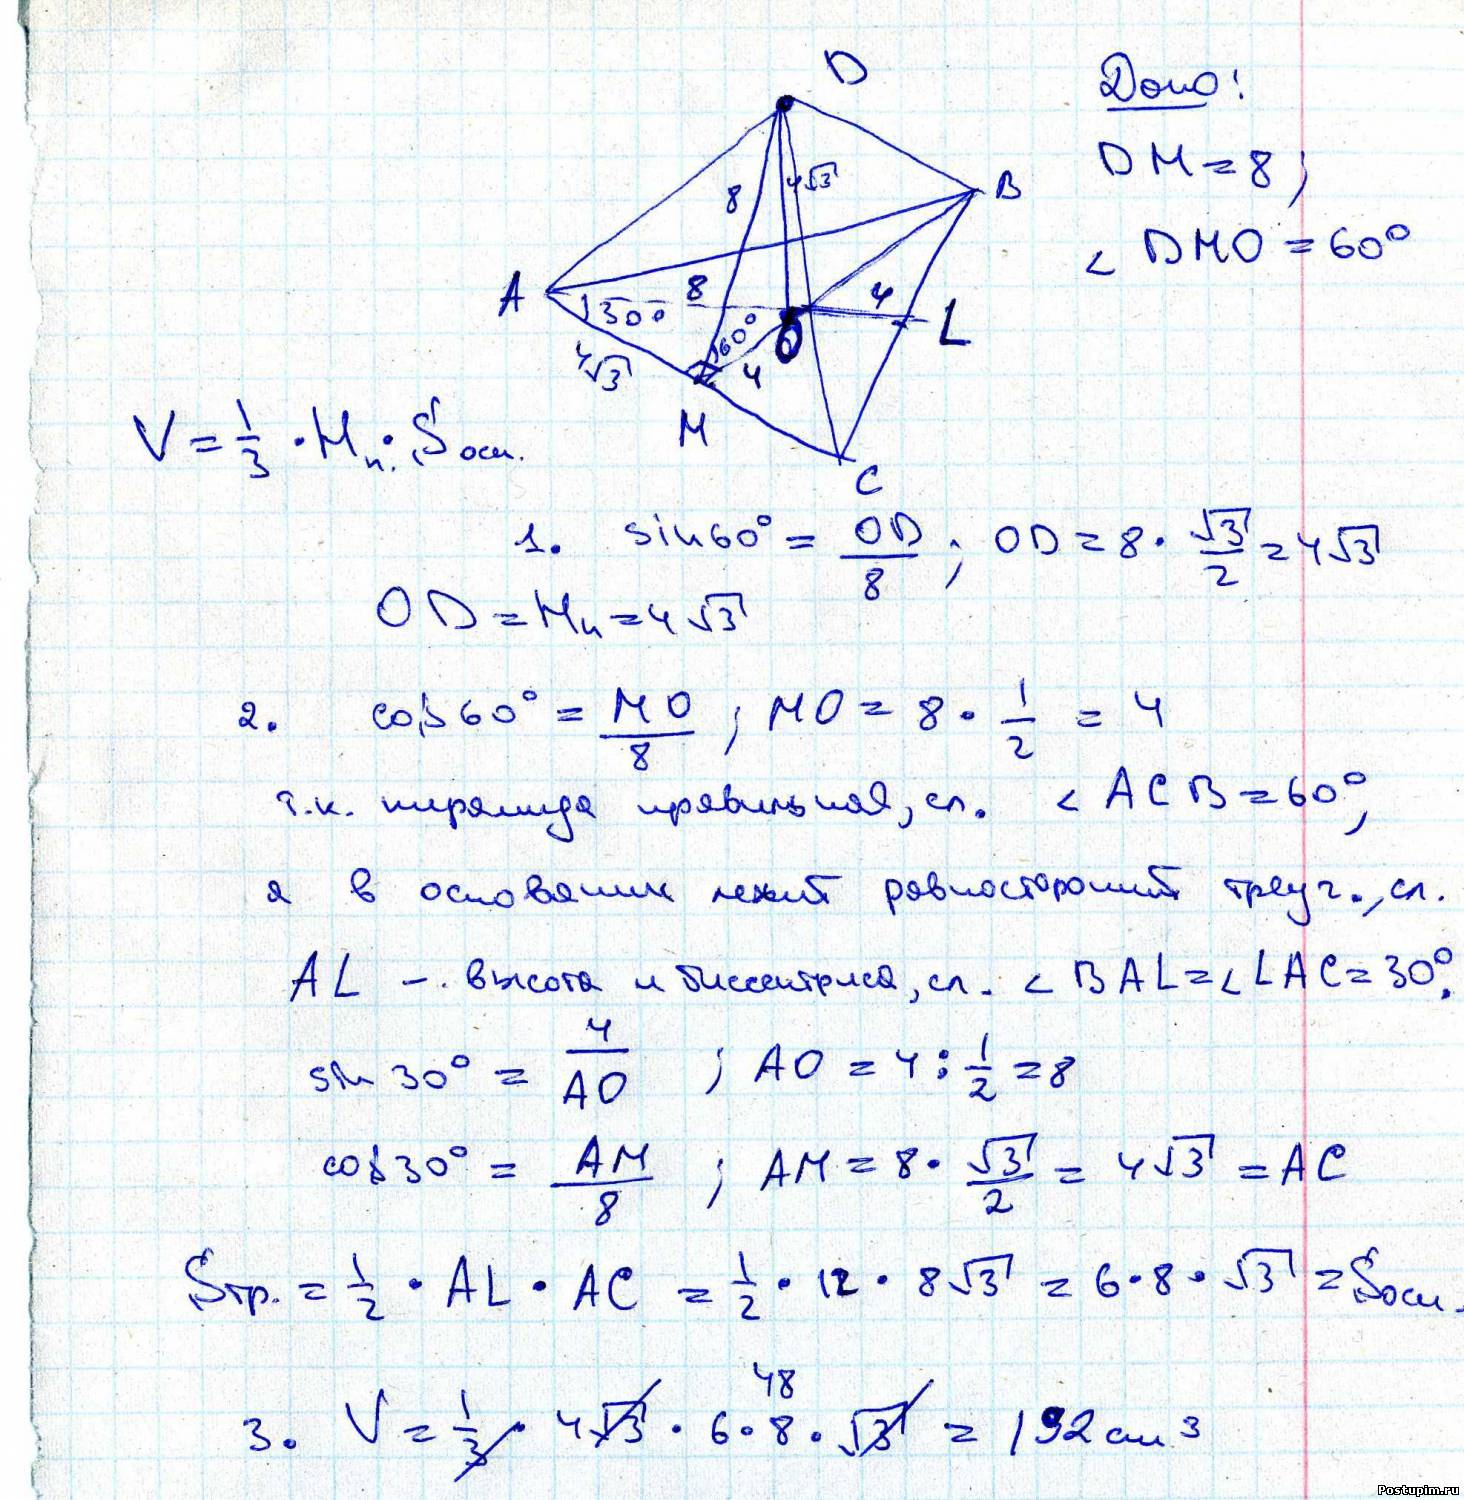 D
Дано:
DM = 8;
∠ DMO = 60°
8
4√3
B
A
30°
8
4
L
60°
O
4√3
4
M
C
V = 1/3 · Hп. · Sосн.
1. sin60° = OD/8; OD = 8 · √3/2 = 4√3
OD = Hп = 4√3
2. cos60° = MO/8; MO = 8 · 1/2 = 4
т.к. пирамида правильная, сл. ∠ ACB = 60°,
а в основании лежит равносторонний треуг., сл.
AL – высота и биссектриса, сл. ∠ BAL = ∠ LAC = 30°.
sin 30° = 4/AO; AO = 4 : 1/2 = 8
cos30° = AM/8; AM = 8 · √3/2 = 4√3 = AC
Sтр. = 1/2 · AL · AC = 1/2 · 12 · 8√3 = 6 · 8 · √3 = Sосн.
48
3. V = 1/3 · 4√3 · 6 · 8 · √3 = 192 см³
Postupim.ru